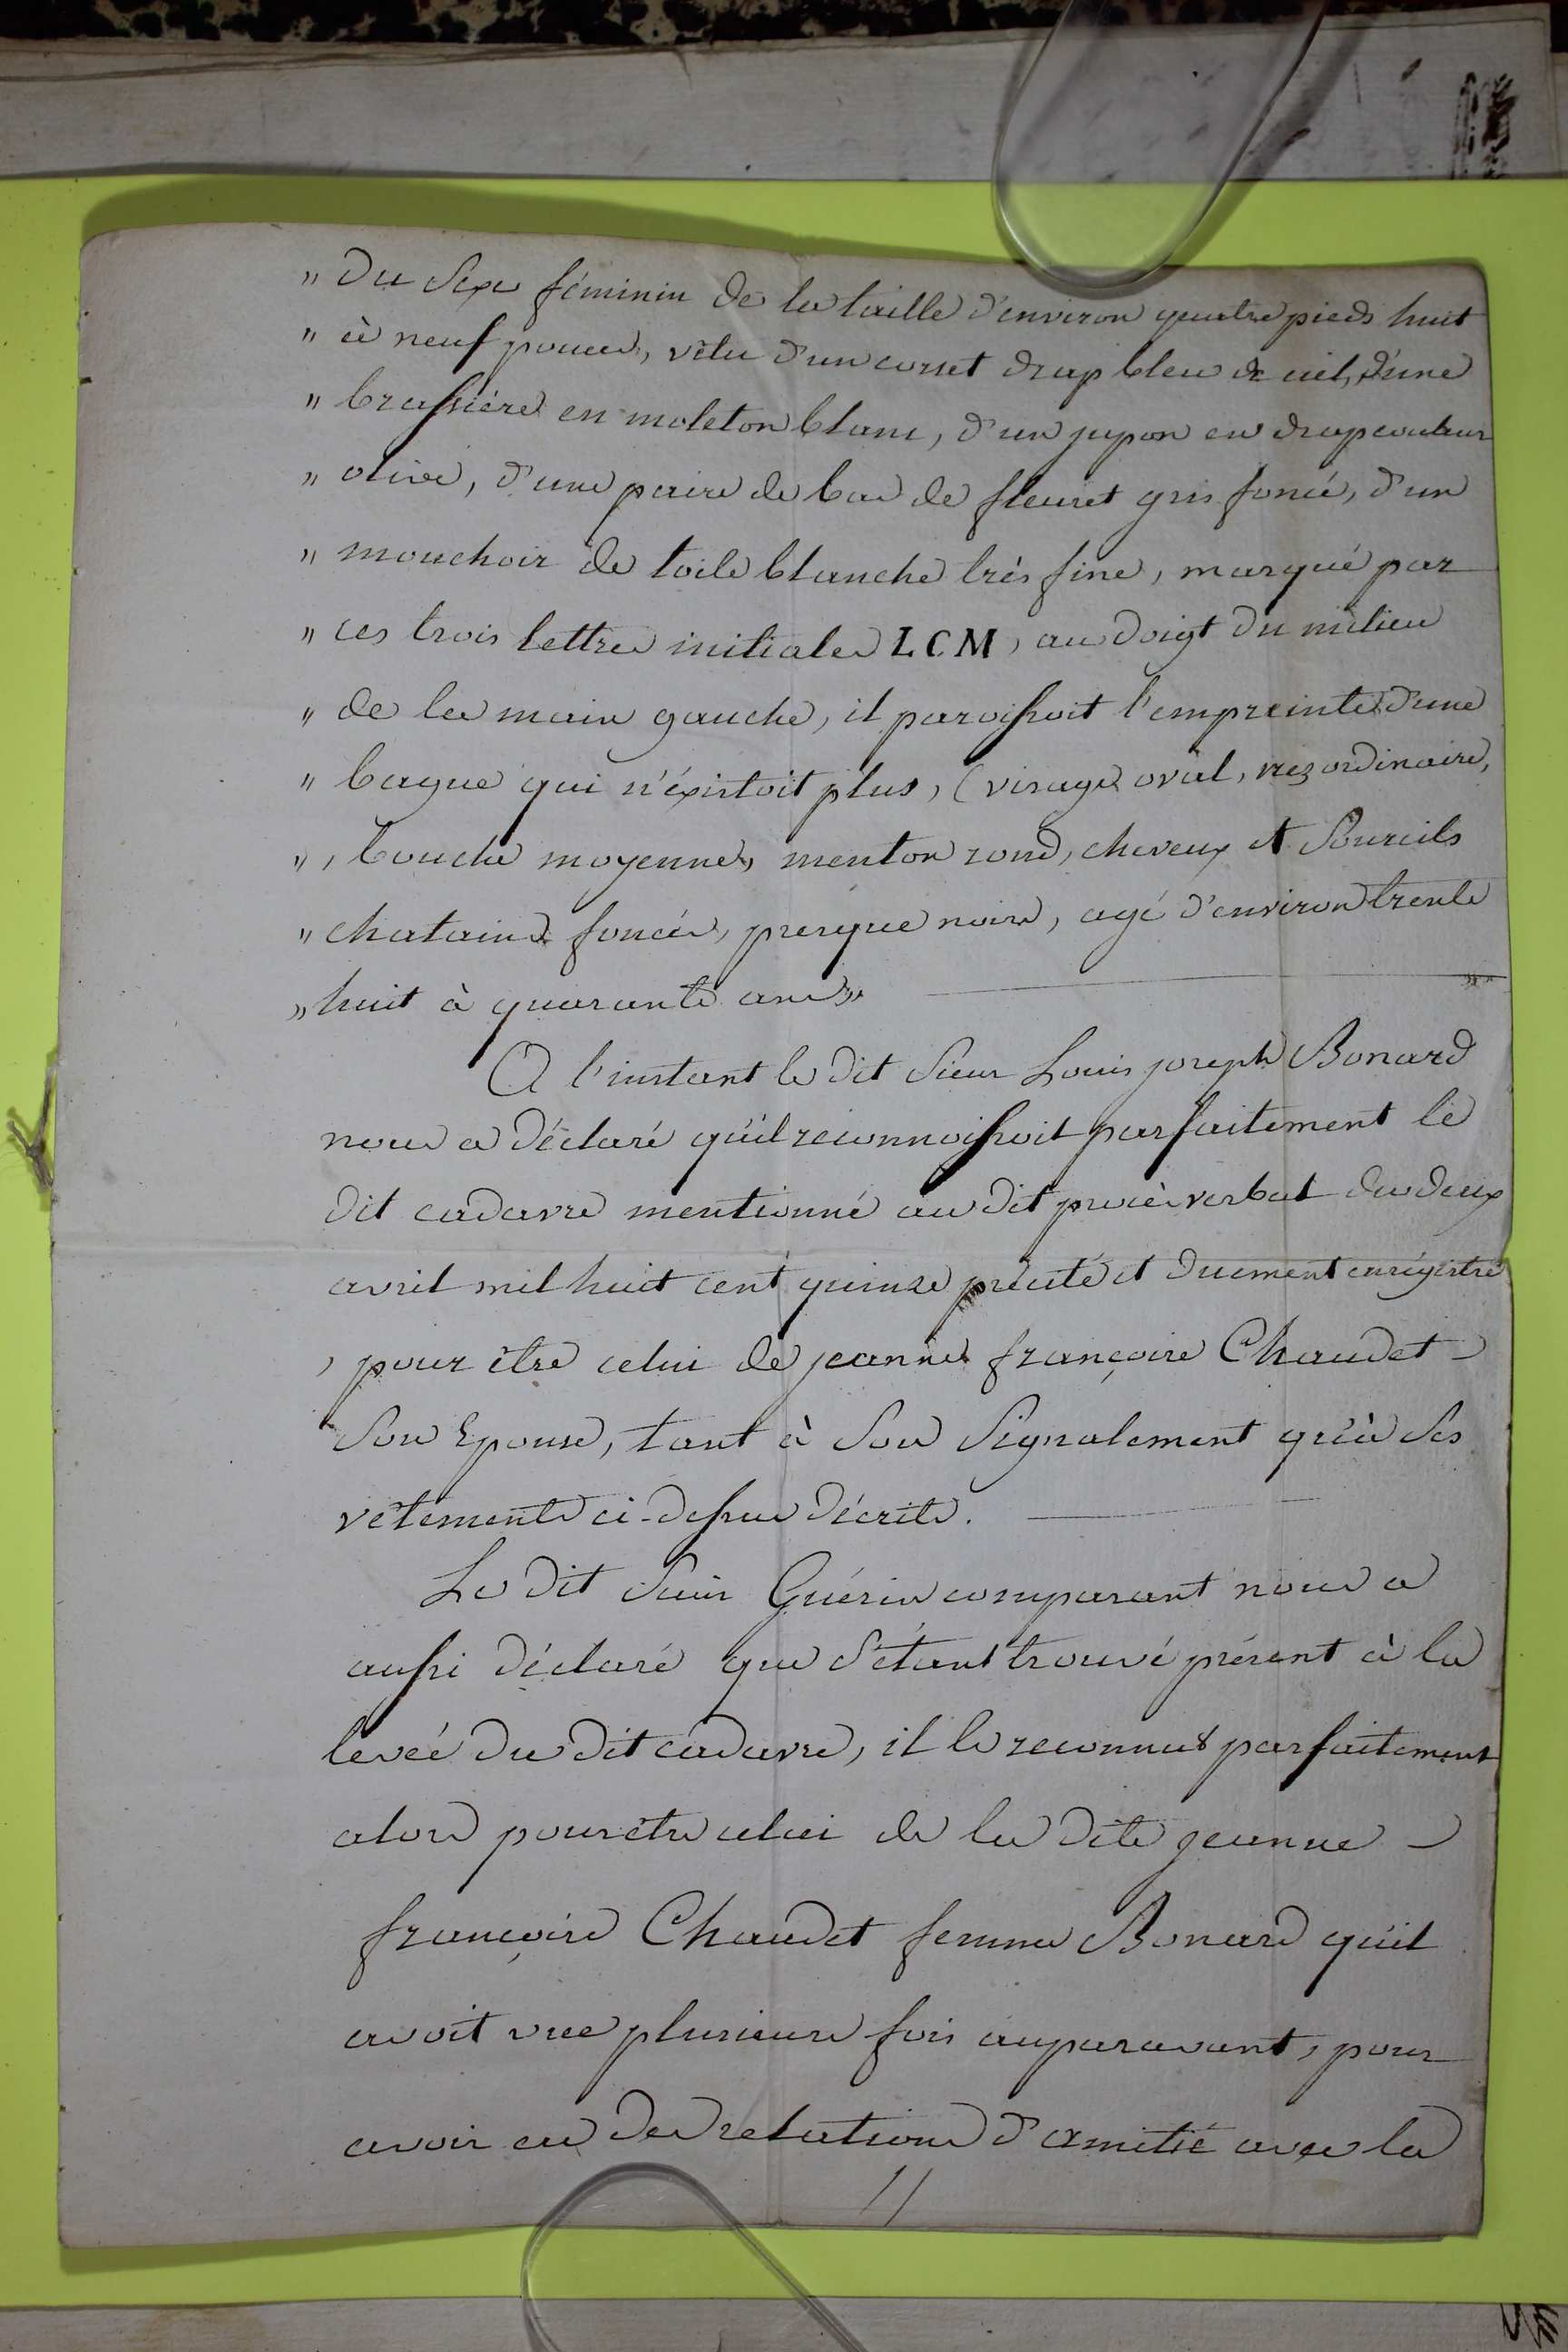 " Du Sexe féminin de la taille d'environ quatre pieds huit
" à neuf pouces, vêtu d'un corset drap bleu de ciel, d'une
" brassière en moleton blanc, d'un jupon en drap couleur
" olive, d'une paire de bas de fleuret gris foncé, d'un
" mouchoir de toile blanche très fine, marqué par
" ces trois lettres initiales LCM, au doigt du milieu
" de la main gauche, il paroissoit l'empreinte d'une
" bague qui n'éxistoit plus, (visage oval, nez ordinaire,
" , bouche moyenne, menton rond, cheveux et Sourcils
" chatains foncés, presque noirs, agé d'environ trente
" huit à quarante ans "
A l'instant le dit Sieur Louis joseph Bonard
nous a déclaré qu'il reconnoissoit parfaitement le
dit cadavre mentionné au dit procès verbal du deux
avril mil huit cent quinze précité et duement enrégistré
, pour être celui de jeanne françoise Chaudet
Son Epouse, tant à Son Signalement qu'à Ses
vêtements ci-dessus décrits.
Le dit Sieur Guérin comparant nous a
aussi déclaré que S'étant trouvé présent à la
levée du dit cadavre, il le reconnut parfaitement
alors pour être celui de la dite jeanne
françoise Chaudet femme Bonard qu'il
avoit vue plusieurs fois auparavant, pour
avoir eu des relations d'amitié avec la